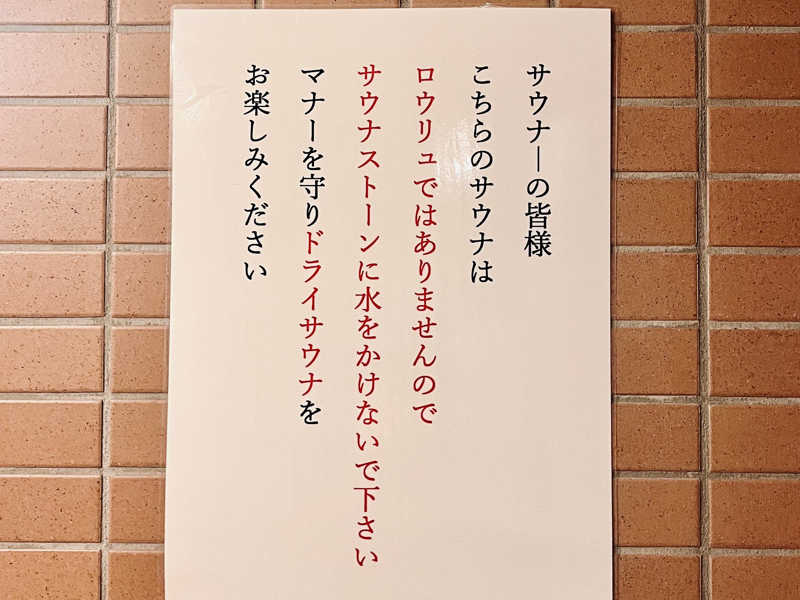 サウナーの皆様
こちらのサウナは
ロウリュではありませんので
サウナストーンに水をかけないで下さい
マナーを守りドライサウナを
お楽しみください